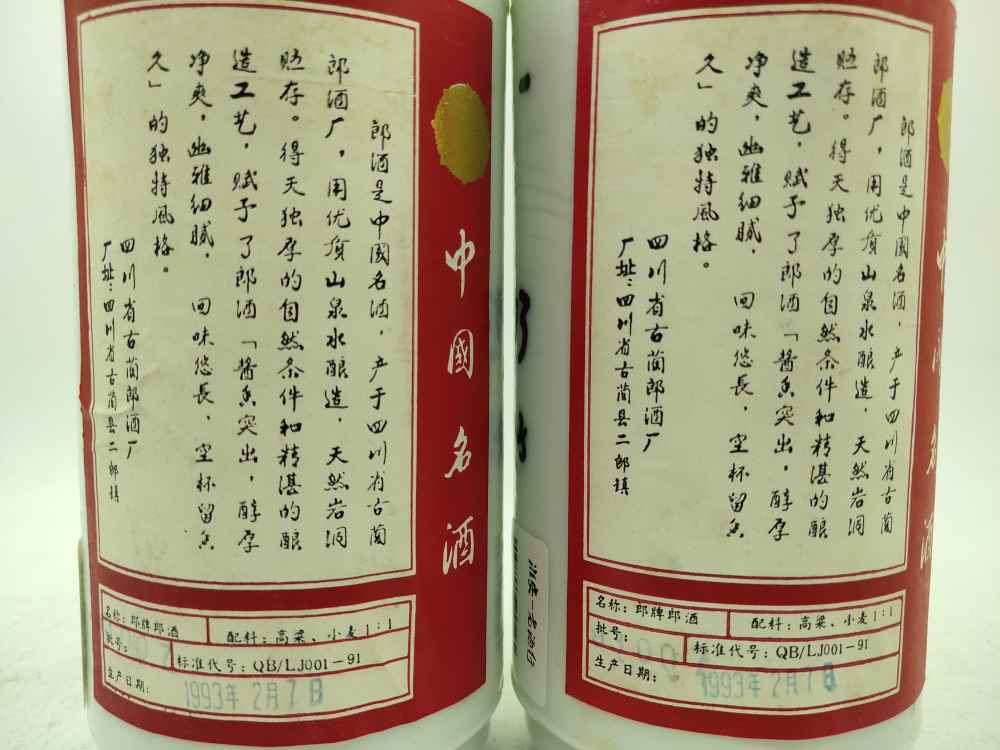 郎酒是中國名酒，产于四川省古蔺
郎酒厂，用优质山泉水酿造，天然岩洞
贮存。得天独厚的自然条件和精湛的酿
造工艺，赋予了郎酒「酱香突出，醇厚
净爽，幽雅细腻，回味悠長，空杯留香
久」的独特風格。
四川省古蔺郎酒厂
厂址：四川省古蔺县二郎镇
中國名酒
名称：郎牌郎酒
配料：高粱、小麦1:1
批号：
标准代号：QB/LJ001-91
生产日期：
1993年2月7日
郎酒是中國名酒，产于四川省古蔺
郎酒厂，用优质山泉水酿造，天然岩洞
贮存。得天独厚的自然条件和精湛的酿
造工艺，赋予了郎酒「酱香突出，醇厚
净爽，幽雅细腻，回味悠長，空杯留香
久」的独特風格。
四川省古蔺郎酒厂
厂址：四川省古蔺县二郎镇
中國名酒
名称：郎牌郎酒
配料：高粱、小麦1:1
批号：
标准代号：QB/LJ001-91
生产日期：
1993年2月7日